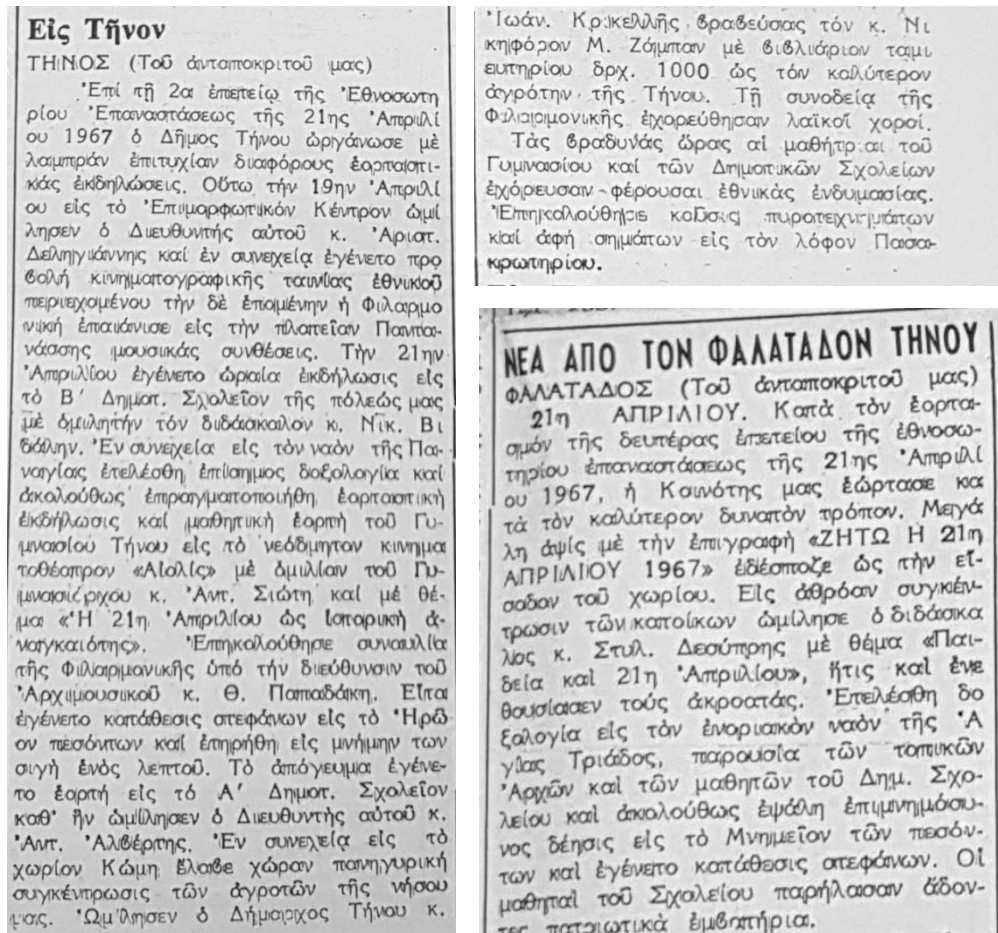 Εἰς Τῆνον
ΤΗΝΟΣ (Τοῦ ἀνταποκριτοῦ μας)
Ἐπί τῇ 2α ἐπετείῳ τῆς Ἐθνοσωτη
ρίου Ἐπαναστάσεως τῆς 21ης Ἀπριλί
ου 1967 ὁ Δῆμος Τήνου ὠργάνωσε μὲ
λαμπράν ἐπιτυχίαν διαφόρους ἑορταστι
κάς ἐκδηλώσεις. Οὕτω τήν 19ην Ἀπριλί
ου εἰς τὸ Ἐπιμορφωτικόν Κέντρον ὡμί
λησεν ὁ Διευθυντής αὐτοῦ κ. Ἀριστ.
Δεληγιάννης καί ἐν συνεχείᾳ ἐγένετο προ
βολή κινηματογραφικῆς ταινίας ἐθνικοῦ
περιεχομένου τὴν δὲ ἑπομένην ἡ Φιλαρμο
νική ἐπαιάνισε εἰς τὴν πλατεῖαν Παντα
νάσσης μουσικάς συνθέσεις. Τὴν 21ην
Ἀπριλίου ἐγένετο ὡραία ἐκδήλωσις εἰς
τὸ Β' Δημοτ. Σχολεῖον τῆς πόλεώς μας
μὲ ὁμιλητήν τόν διδάσκαλον κ. Νικ. Βι
δάλην. Ἐν συνεχεία εἰς τὸν ναὸν τῆς Πα
ναγίας ἐτελέσθη ἐπίσημος δοξολογία καί
ἀκολούθως ἐπραγματοποιήθη ἑορταστική
ἐκδήλωσις καί μαθητική ἑορτή τοῦ Γυ
μνασίου Τήνου εἰς τὸ νεόδμητον κινημα
τοθέατρον «Αἰολίς» μὲ ὁμιλίαν τοῦ Γυ
μνασιάρχου κ. Ἀντ. Σιώτη καί μέ θέ-
μα «Ἡ 21η Ἀπριλίου ὡς ἱστορική ἀ-
ναγκαιότης». Ἐπηκολούθησε συναυλία
τῆς Φιλαρμονικῆς ὑπό τὴν διεύθυνσιν τοῦ
Ἀρχιμουσικοῦ κ. Θ. Παπαδάκη. Εἶτα
ἐγένετο κατάθεσις στεφάνων εἰς τὸ Ἡρῶ
ον πεσόντων καί ἐτηρήθη εἰς μνήμην των
σιγή ἑνός λεπτοῦ. Τὸ ἀπόγευμα ἐγένε-
το ἑορτή εἰς τό Α' Δημοτ. Σχολεῖον
καθ' ἥν ὡμίλησεν ὁ Διευθυντής αὐτοῦ κ.
Ἀντ. Ἀλβέρτης. Ἐν συνεχεία εἰς τὸ
χωρίον Κώμη ἔλαβε χώραν πανηγυρική
συγκέντρωσις τῶν ἀγροτῶν τῆς νήσου
μας. Ὡμίλησεν ὁ Δήμαρχος Τήνου κ.
Ἰωάν. Κρικελλῆς βραβεύσας τόν κ. Νι
κηφόρον Μ. Ζάμπαν μὲ βιβλιάριον ταμι
ευτηρίου δρχ. 1000 ὡς τόν καλύτερον
ἀγρότην τῆς Τήνου. Τῇ συνοδεία τῆς
Φιλαρμονικῆς ἐχορεύθησαν λαϊκοί χοροί.
Τὰς βραδυνάς ὥρας αἱ μαθήτριαι τοῦ
Γυμνασίου καί τῶν Δημοτικῶν Σχολείων
ἐχόρευσαν φέρουσαι ἐθνικάς ἐνδυμασίας.
Ἐπηκολούθησε καῦσις πυροτεχνημάτων
καί ἁφή σημάτων εἰς τὸν λόφον Πασα-
κρωτηρίου.
ΝΕΑ ΑΠΟ ΤΟΝ ΦΑΛΑΤΑΔΟΝ ΤΗΝΟΥ
ΦΑΛΑΤΑΔΟΣ (Τοῦ ἀνταποκριτοῦ μας)
21η ΑΠΡΙΛΙΟΥ. Κατὰ τὸν ἑορτα-
σμόν τῆς δευτέρας ἐπετείου τῆς ἐθνοσω-
τηρίου ἐπαναστάσεως τῆς 21ης Ἀπριλί
ου 1967, ἡ Κοινότης μας ἑώρτασε κα
τὰ τὸν καλύτερον δυνατὸν τρόπον. Μεγά
λη ἁψίς μὲ τὴν ἐπιγραφή «ΖΗΤΩ Η 21η
ΑΠΡΙΛΙΟΥ 1967» ἐδέσποζε ὡς τὴν εἴ-
σοδον τοῦ χωρίου. Εἰς ἀθρόαν συγκέν-
τρωσιν τῶν κατοίκων ὡμίλησε ὁ διδάσκα
λος κ. Στυλ. Δεσύπρης μὲ θέμα «Παι-
δεία καί 21η Ἀπριλίου», ἥτις καί ἐνε
θουσίασεν τούς ἀκροατάς. Ἐτελέσθη δο
ξολογία εἰς τὸν ἐνοριακὸν ναὸν τῆς Ἁ
γίας Τριάδος, παρουσία τῶν τοπικῶν
Ἀρχῶν καί τῶν μαθητῶν τοῦ Δημ. Σχο-
λείου καί ἀκολούθως ἐψάλη ἐπιμνημόσυ-
νος δέησις εἰς τὸ Μνημεῖον τῶν πεσόν-
των καί ἐγένετο κατάθεσις στεφάνων. Οἱ
μαθηταί τοῦ Σχολείου παρήλασαν ἄδον-
τες πατριωτικά ἐμβατήρια.